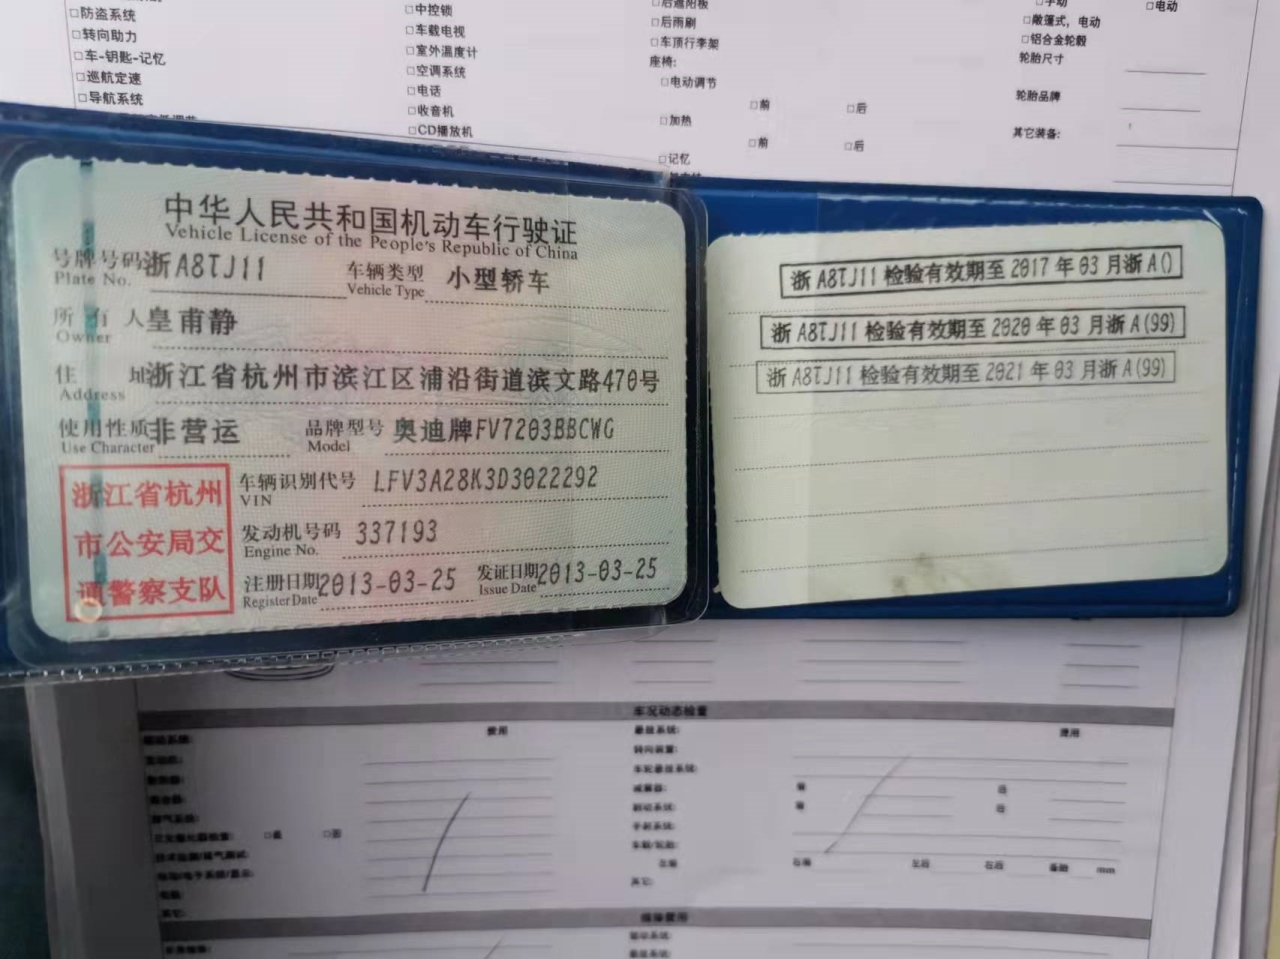 □防盗系统
□转向助力
□车-钥匙-记忆
□巡航定速
□导航系统
□中控锁
□车载电视
□室外温度计
□空调系统
□电话
□收音机
□CD播放机
□后遮阳板
□后雨刷
□车顶行李架
座椅:
□电动调节
□前 □后
□加热
□前 □后
□记忆
□手动 □电动
□敞篷式，电动
□铝合金轮毂
轮胎尺寸
轮胎品牌
其它装备:
中华人民共和国机动车行驶证
Vehicle License of the People's Republic of China
号牌号码 浙A8TJ11 车辆类型 小型轿车
Plate No. Vehicle Type
所有人 皇甫静
Owner
住址 浙江省杭州市滨江区浦沿街道滨文路470号
Address
使用性质 非营运 品牌型号 奥迪牌FV7203BBCWG
Use Character Model
浙江省杭州
市公安局交
通警察支队
车辆识别代号 LFV3A28K3D3022292
VIN
发动机号码 337193
Engine No.
注册日期 2013-03-25 发证日期 2013-03-25
Register Date Issue Date
浙A8TJ11检验有效期至2017年03月浙A()
浙A8TJ11检验有效期至2020年03月浙A(99)
浙A8TJ11检验有效期至2021年03月浙A(99)
车况动态检查
费用 费用
转向装置:
其它:
左后 右后 备胎 mm
其它: